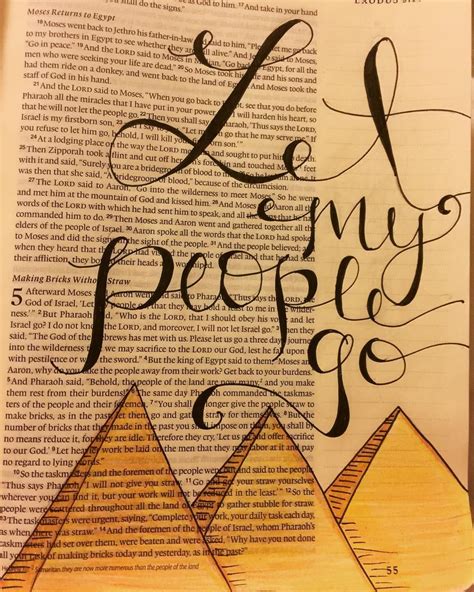 did all the signs." 17 And take in your hand
EXODUS
Moses Returns to Egypt
18 Moses went back to Jethro his father-in-law and said to him, "Please let me go back
to my brothers in Egypt to see whether they are still alive." And Jethro said to Moses,
"Go in peace." 19 And the LORD said to Moses in Midian, "Go back to Egypt, for all the
men who were seeking your life are dead." 20 So Moses took his wife and his sons and
had them ride on a donkey, and went back to the land of Egypt. And Moses took the
staff of God in his hand.
21 And the LORD said to Moses, "When you go back to Egypt, see that you do before
Pharaoh all the miracles that I have put in your power. But I will harden his heart, so
that he will not let the people go. 22 Then you shall say to Pharaoh, 'Thus says the LORD,
Israel is my firstborn son, 23 and I say to you, "Let my son go that he may serve me." If
you refuse to let him go, behold, I will kill your firstborn son.'"
24 At a lodging place on the way the LORD met him and sought to put him to death.
25 Then Zipporah took a flint and cut off her son's foreskin and touched Moses' feet
with it and said, "Surely you are a bridegroom of blood to me!" 26 So he let him alone. It
was then that she said, "A bridegroom of blood," because of the circumcision.
27 The LORD said to Aaron, "Go into the wilderness to meet Moses." So he went
and met him at the mountain of God and kissed him. 28 And Moses told Aaron all the
words of the LORD with which he had sent him to speak, and all the signs that he had
commanded him to do. 29 Then Moses and Aaron went and gathered together all the
elders of the people of Israel. 30 Aaron spoke all the words that the LORD had spoken
to Moses and did the signs in the sight of the people. 31 And the people believed; and
when they heard that the LORD had visited the people of Israel and that he had seen
their affliction, they bowed their heads and worshiped.
Let
my
people
go
Making Bricks Without Straw
5 Afterward Moses and Aaron went and said to Pharaoh, "Thus says the LORD, the
God of Israel, 'Let my people go, that they may hold a feast to me in the wilder-
ness.'" 2 But Pharaoh said, "Who is the LORD, that I should obey his voice and let
Israel go? I do not know the LORD, and moreover, I will not let Israel go." 3 Then they
said, "The God of the Hebrews has met with us. Please let us go a three days' journey
into the wilderness that we may sacrifice to the LORD our God, lest he fall upon us
with pestilence or with the sword." 4 But the king of Egypt said to them, "Moses and
Aaron, why do you take the people away from their work? Get back to your burdens."
5 And Pharaoh said, "Behold, the people of the land are now many, and you make
them rest from their burdens!" 6 The same day Pharaoh commanded the taskmas-
ters of the people and their foremen, 7 "You shall no longer give the people straw to
make bricks, as in the past; let them go and gather straw for themselves. 8 But the
number of bricks that they made in the past you shall impose on them, you shall by
no means reduce it, for they are idle. Therefore they cry, 'Let us go and offer sacrifice
to our God.' 9 Let heavier work be laid on the men that they may labor at it and pay
no regard to lying words."
10 So the taskmasters and the foremen of the people went out and said to the people,
"Thus says Pharaoh, 'I will not give you straw. 11 Go and get your straw yourselves
wherever you can find it, but your work will not be reduced in the least.'" 12 So the
people were scattered throughout all the land of Egypt to gather stubble for straw.
13 The taskmasters were urgent, saying, "Complete your work, your daily task each
day, as when there was straw." 14 And the foremen of the people of Israel, whom Pharaoh's
taskmasters had set over them, were beaten and were asked, "Why have you not done
all your task of making bricks today and yesterday, as in the past?"
Samaritan they are now more numerous than the people of the land
55